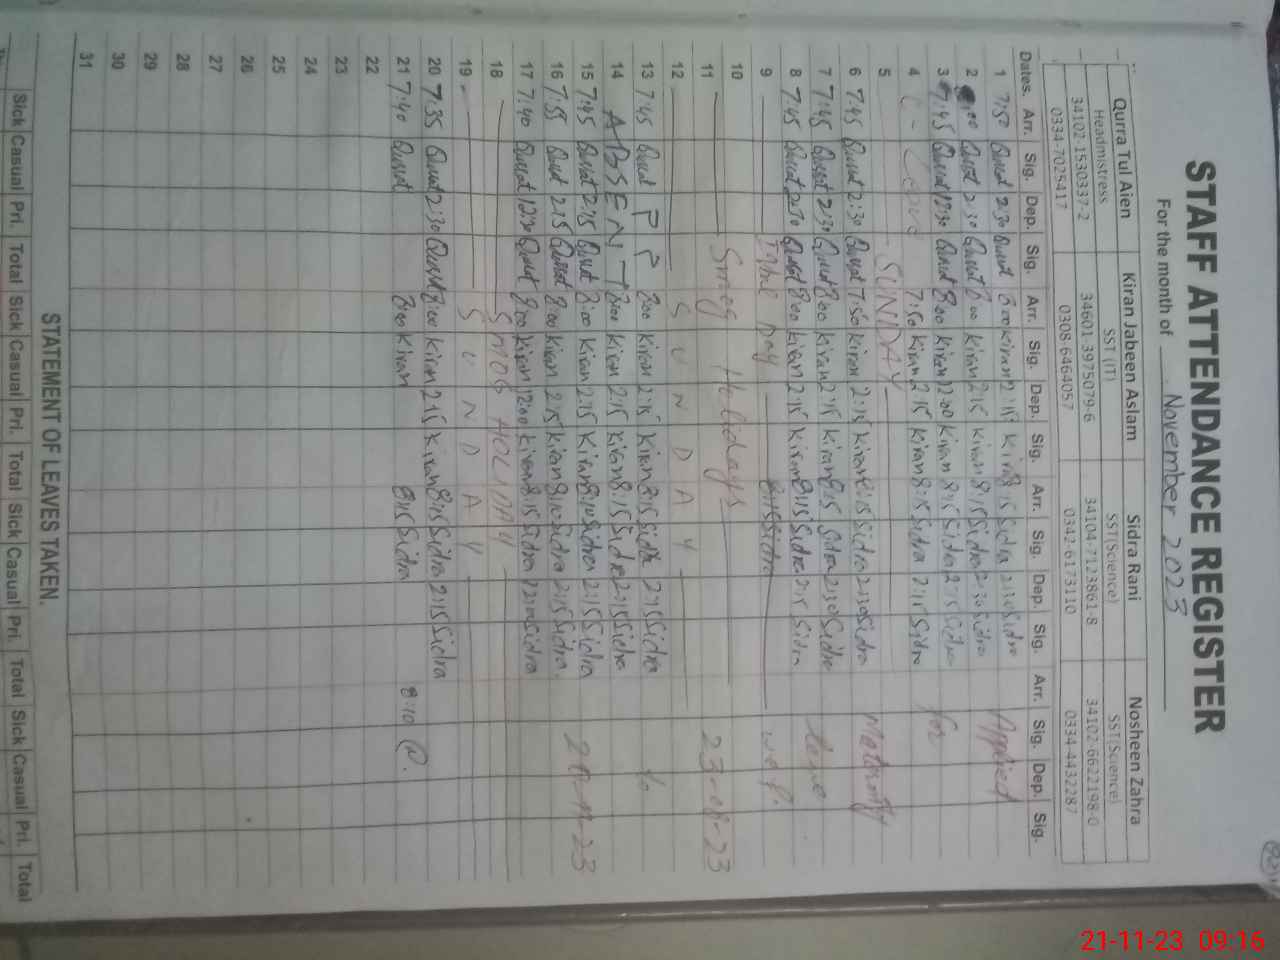 STAFF ATTENDANCE REGISTER
For the month of November 2023
Qurra Tul Aien Kiran Jabeen Aslam Sidra Rani Nosheen Zahra
Headmistress SST (IT) SST(Science) SST(Science)
34102-1530337-2 34601-3975079-6 34104-7123861-8 34102-6622198-0
0334-7025417 0308-6464057 0342-6173110 0334-4432287
Dates. Arr. Sig. Dep. Sig. Arr. Sig. Dep. Sig. Arr. Sig. Dep. Sig. Arr. Sig. Dep. Sig.
1 7:50 Qurat 2:30 Qurat 8:00 Kiran 2:15 Kiran 8:15 Sidra 2:30 Sidra Applied
2 Qurat 2:30 Qurat 8:00 Kiran 2:15 Kiran 8:15 Sidra 2:30 Sidra
3 7:45 Qurat 12:30 Qurat 8:00 Kiran 12:00 Kiran 8:15 Sidra 2:15 Sidra for
4 C-Leave 7:50 Kiran 2:15 Kiran 8:15 Sidra 2:15 Sidra
5 SUNDAY
6 7:45 Qurat 2:30 Qurat 7:50 Kiran 2:15 Kiran 8:15 Sidra 2:30 Sidra Maternity
7 7:45 Qurat 2:30 Qurat 8:00 Kiran 2:15 Kiran 8:15 Sidra 2:30 Sidra leave
8 7:45 Qurat 2:30 Qurat 8:00 Kiran 2:15 Kiran 8:15 Sidra 2:15 Sidra
9 Iqbal Day 8:15 Sidra w.e.f.
10 Smog Holidays
11 23-08-23
12 SUNDAY
13 7:45 Qurat P P 8:00 Kiran 2:15 Kiran 8:15 Sidra 2:15 Sidra to
14 ABSENT 8:00 Kiran 2:15 Kiran 8:15 Sidra 2:15 Sidra
15 7:45 Qurat 2:15 Qurat 8:00 Kiran 2:15 Kiran 8:10 Sidra 2:15 Sidra
16 7:55 Qurat 2:15 Qurat 8:00 Kiran 2:15 Kiran 8:10 Sidra 2:15 Sidra 20-11-23
17 7:40 Qurat 12:30 Qurat 8:00 Kiran 12:00 Kiran 8:15 Sidra Sidra
18 SMOG HOLIDAY
19 SUNDAY
20 7:35 Qurat 2:30 Qurat 8:00 Kiran 2:15 Kiran 8:15 Sidra 2:15 Sidra
21 7:40 Qurat 8:00 Kiran 8:15 Sidra 8:10
22
23
24
25
26
27
28
29
30
31
Sick Casual Pri. Total Sick Casual Pri. Total Sick Casual Pri. Total Sick Casual Pri. Total
STATEMENT OF LEAVES TAKEN.
21-11-23 09:16